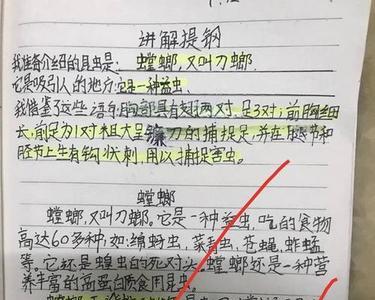 讲解提钢
我准备介绍的昆虫是:螳螂,又叫刀螂.
它吸引人的地方:它是一种益虫.
我借鉴了这些语句:胸部具有翅两对,足3对;前胸细
长,前足为1对粗大呈镰刀的捕捉足,并在腿节和
胫节上生有钩状刺,用以捕捉害虫。
螳螂
螳螂,又叫刀螂。它是一种益虫,吃的食物
高达60多种,如:绵蚜虫,菜青虫,苍蝇,蚱蜢
等。它还是蝗虫的死对头。螳螂还是一种营
养丰富的高蛋白质食用昆虫。